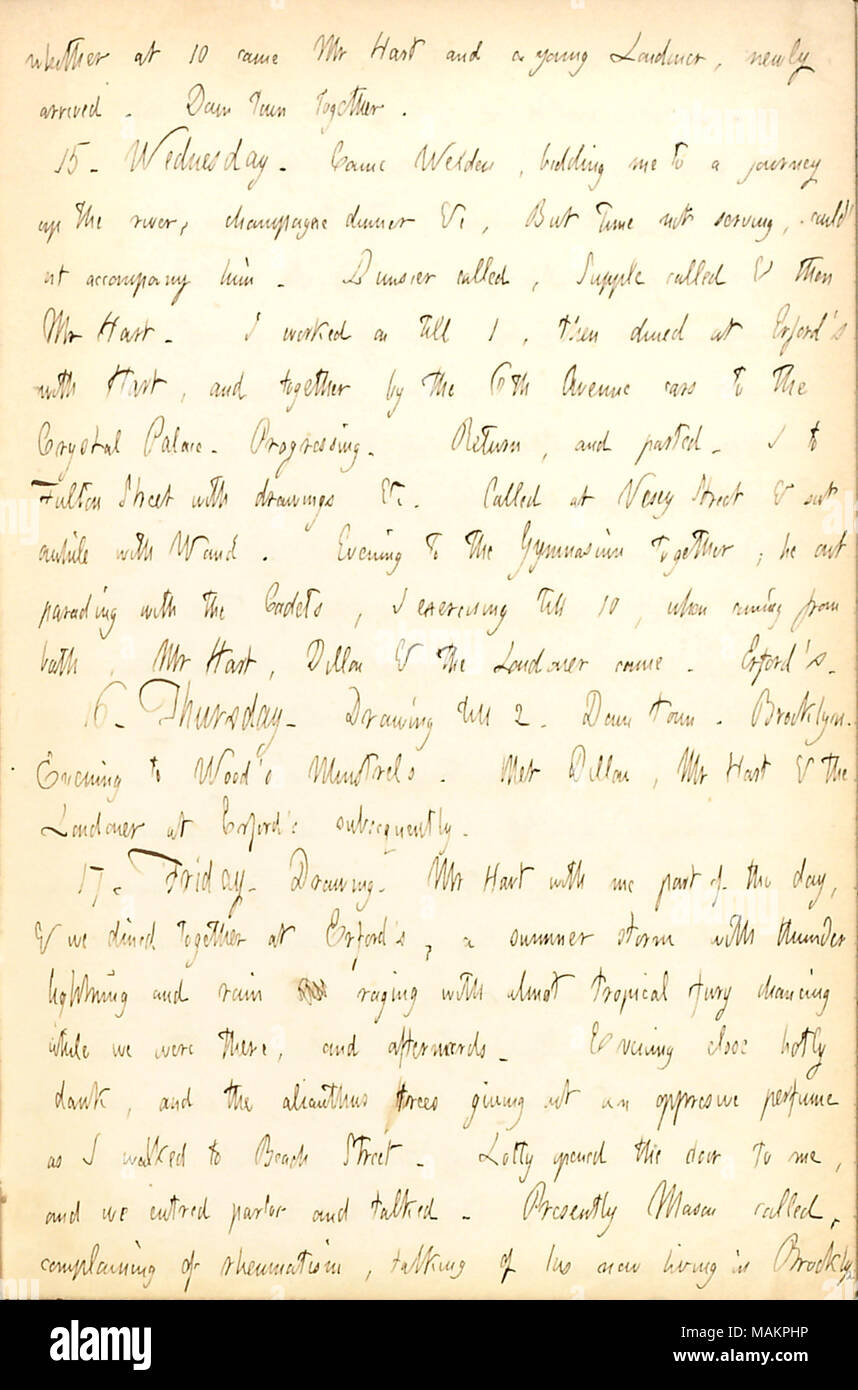 whither at 10 came Mr Hart and a young Londoner, newly
arrived. Down town together.
15. Wednesday. Came Welden, bidding me to a journey
up the river, champagne dinner &c, But time not serving, could
nt accompany him. Dunsier called, Supple called & then
Mr Hart. I worked on till 1, then dined at Erford's
with Hart, and together by the 6th Avenue cars to the
Crystal Palace. Progressing. Return, and parted. I to
Fulton Street with drawings &c. Called at Vesey Street & sat
awhile with Waud. Evening to the Gymnasium together, he out
parading with the Cadets, I exercising till 10, when coming from
bath, Mr Hart, Dillon & the Londoner came. Erford's.
16. Thursday. Drawing till 2. Down town. Brooklyn.
Evening to Wood's Minstrels. Met Dillon, Mr Hart & the
Londoner at Erford's subsequently.
17. Friday. Drawing. Mr Hart with me part of the day,
& we dined together at Erford's, a summer storm with thunder
lightning and rain raging with almost tropical fury chancing
while we were there, and afterwards. Evening close hotly
dank, and the alianthus trees giving out an oppresive perfume
as I walked to Beach Street. Lotty opened the door to me,
and we entred parlor and talked. Presently Mason called,
complaining of rheumatism, talking of his now living in Brookly
alamy
Image ID: MAKPHP
www.alamy.com